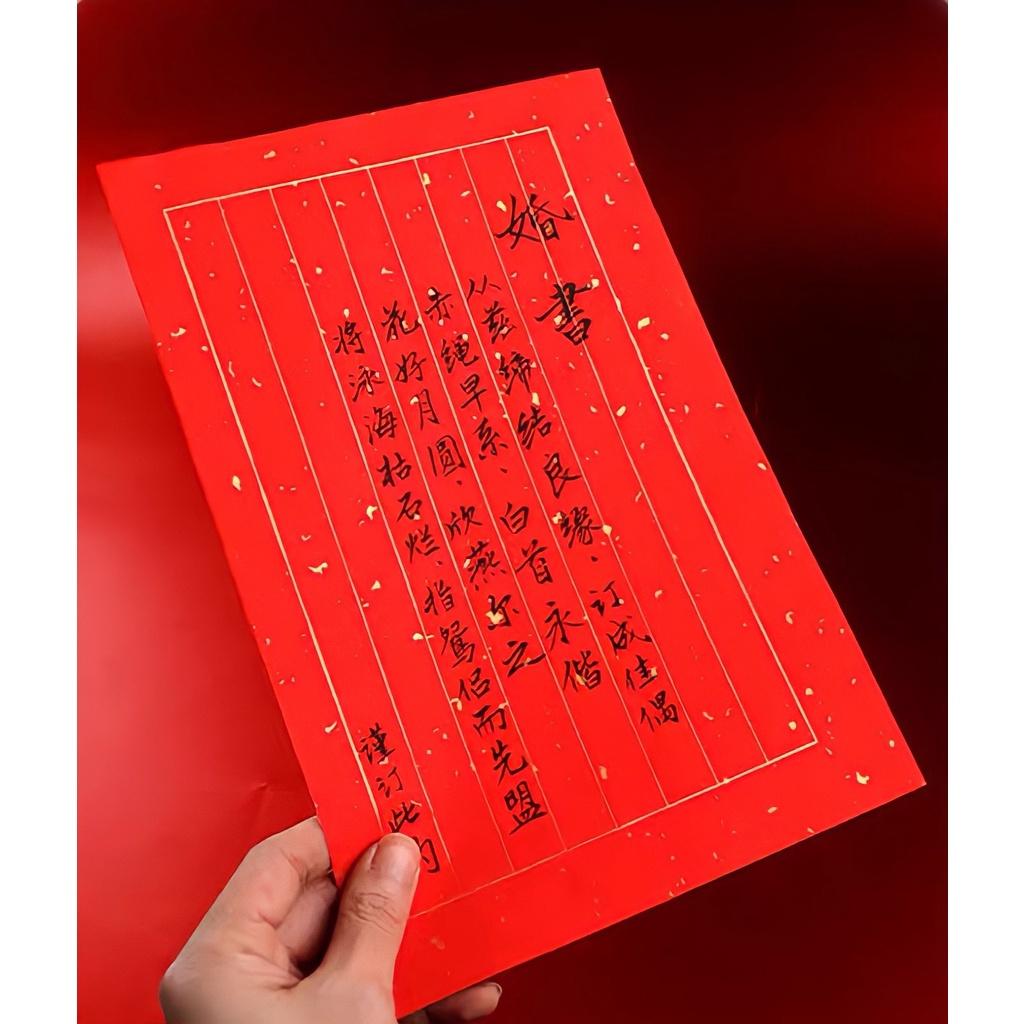 婚書
从兹缔结良缘、订成佳偶
赤绳早系、白首永偕
花好月圆、欣燕尔之
将泳海枯石烂、指鸳侣而先盟
谨订此约